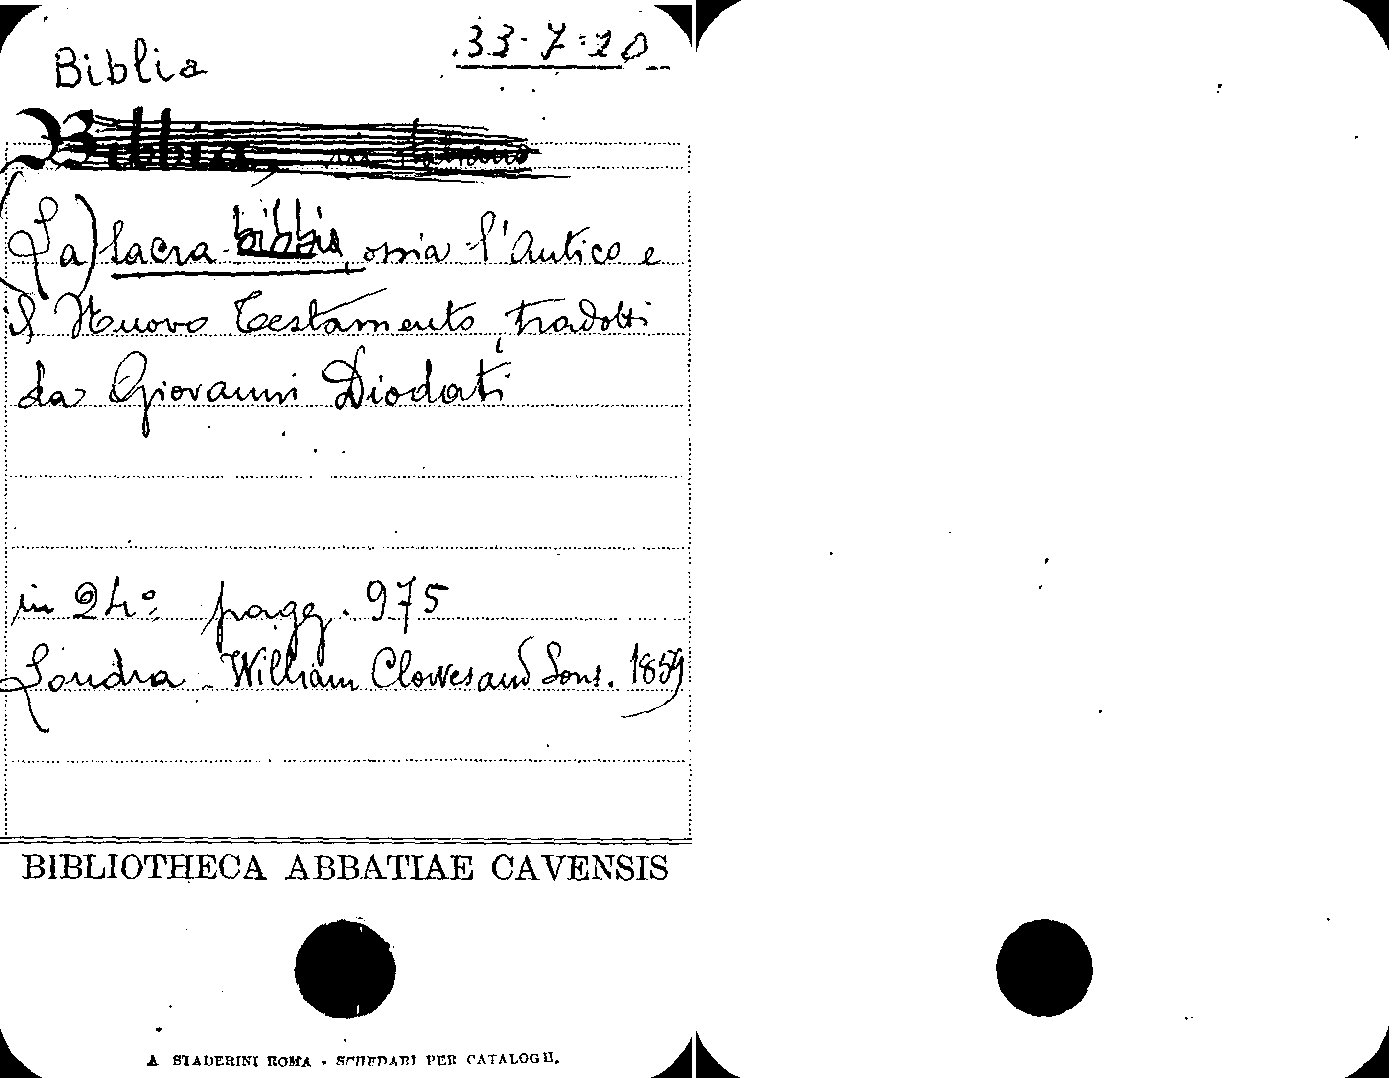 33-7-20
Biblia
Bibbia, in italiano
(La) sacra bibbia, ossia l'Antico e
il Nuovo Testamento, tradotti
da Giovanni Diodati
in 24° pagg. 975
Londra - William Clowes and Sons. 1859
BIBLIOTHECA ABBATIAE CAVENSIS
A. STADERINI ROMA - SCHEDARI PER CATALOGHI.